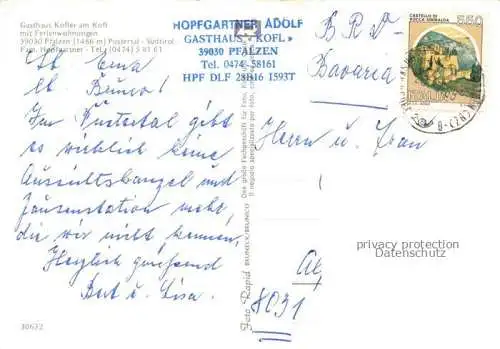 Gasthaus Kofler am Kofl
mit Ferienwohnungen
39030 Pfalzen (1486 m) Pustertal - Südtirol
Fam. Hopfgartner - Tel. (0474) 5 81 61
HOPFGARTNER ADOLF
GASTHAUS « KOFL »
39030 PFALZEN
Tel. 0474 - 58161
HPF DLF 28B16 1593T
CASTELLO DI
ROCCA SINIBALDA
550
B R D -
Bavaria
Lb. Erna
Lb. Bruno!
Im Pustertal gibt
es wirklich keine
Aussichtskanzel und
Jausenstation mehr,
die wir nicht kennen.
Herzlich grüssend
Bert u. Lisa.
Herrn u. Frau
8031
privacy protection
Datenschutz
Foto Rapid BRUNECK/BRUNICO
Das große Fachgeschäft für Foto,
Il negozio specializzato per
30632